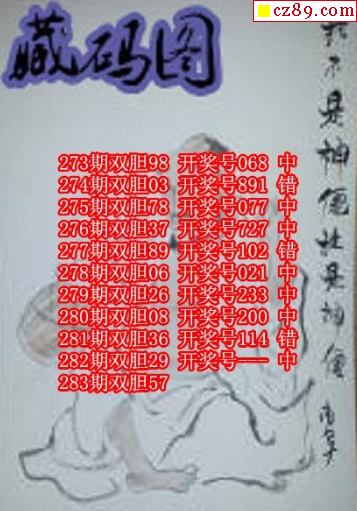 cz89.com
藏码图
273期双胆98 开奖号068 中
274期双胆03 开奖号891 错
275期双胆78 开奖号077 中
276期双胆37 开奖号727 中
277期双胆89 开奖号102 错
278期双胆06 开奖号021 中
279期双胆26 开奖号233 中
280期双胆08 开奖号200 中
281期双胆36 开奖号114 错
282期双胆29 开奖号—— 中
283期双胆57
不是神便是神仙